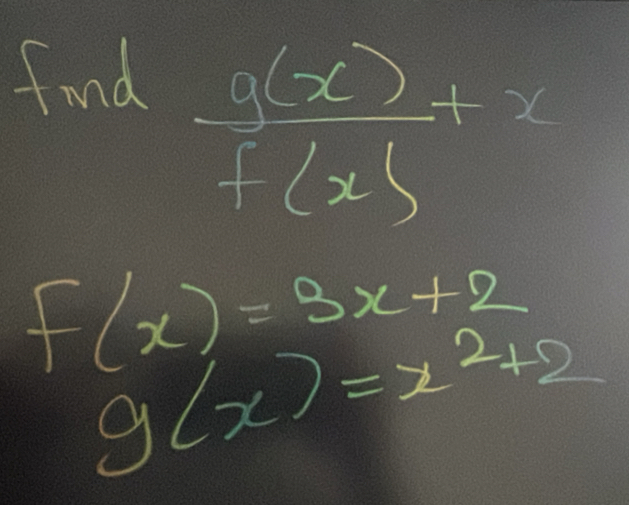 find g(x)/f(x) + x
f(x) = 3x+2
g(x) = x²+2